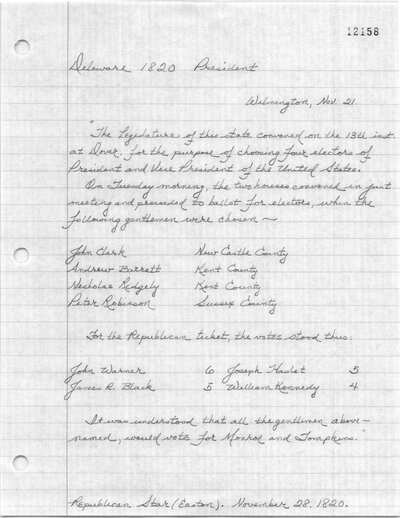 12158
Delaware 1820 President
Wilmington, Nov. 21.
"The Legislature of this state convened on the 13th inst.
at Dover, for the purpose of choosing four electors of
President and Vice President of the United States.
On Tuesday morning, the two houses convened in joint
meeting and proceeded to ballot for electors, when the
following gentlemen were chosen ~
John Clark New Castle County
Andrew Barrett Kent County
Nicholas Ridgely Kent County
Peter Robinson Sussex County
For the Republican ticket, the votes stood thus:
John Warner 6 Joseph Haslet 5
James R. Black 5 William Kennedy 4
It was understood that all the gentlemen above-
named, would vote for Monroe and Tompkins."
Republican Star (Easton). November 28, 1820.